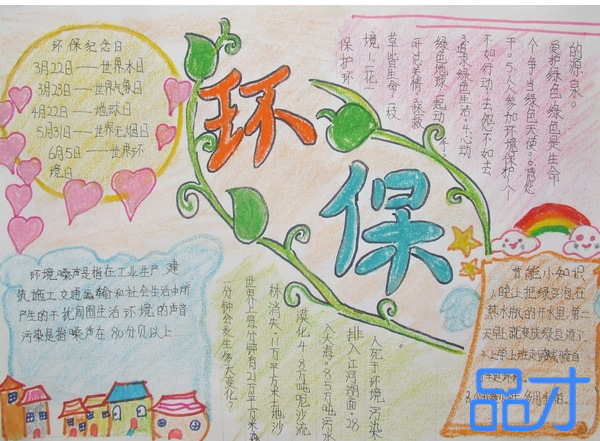 环保
环保纪念日
3月22日——世界水日
3月23日——世界气象日
4月22日——地球日
5月31日——世界无烟日
6月5日——世界环
境日
的源泉。
爱护绿色,绿色是生命
个个争当绿色天使。
干。5.人人参加环境保护,个
不如行动,去怨不如去
3.追求绿色生活
绿色地球
草皆生命,一枝
境1.一花
保护环
环境噪声是指在工业生产,建
筑施工,交通运输和社会生活中所
产生的干扰周围生活环境的声音
污染是指噪声在80分贝以上.
一分钟会发生多大变化?
世界上每分钟有21万平方米森
林消失,11万平方米土地沙
漠化4.8万吨泥沙流
入大海。85万吨污水
排入江河湖面。28
人死于环境污染
节能小知识
1.晚上把绿豆泡在
热水瓶的开水里,第二
天早上就变成绿豆汤了.
2.上学上班
品才